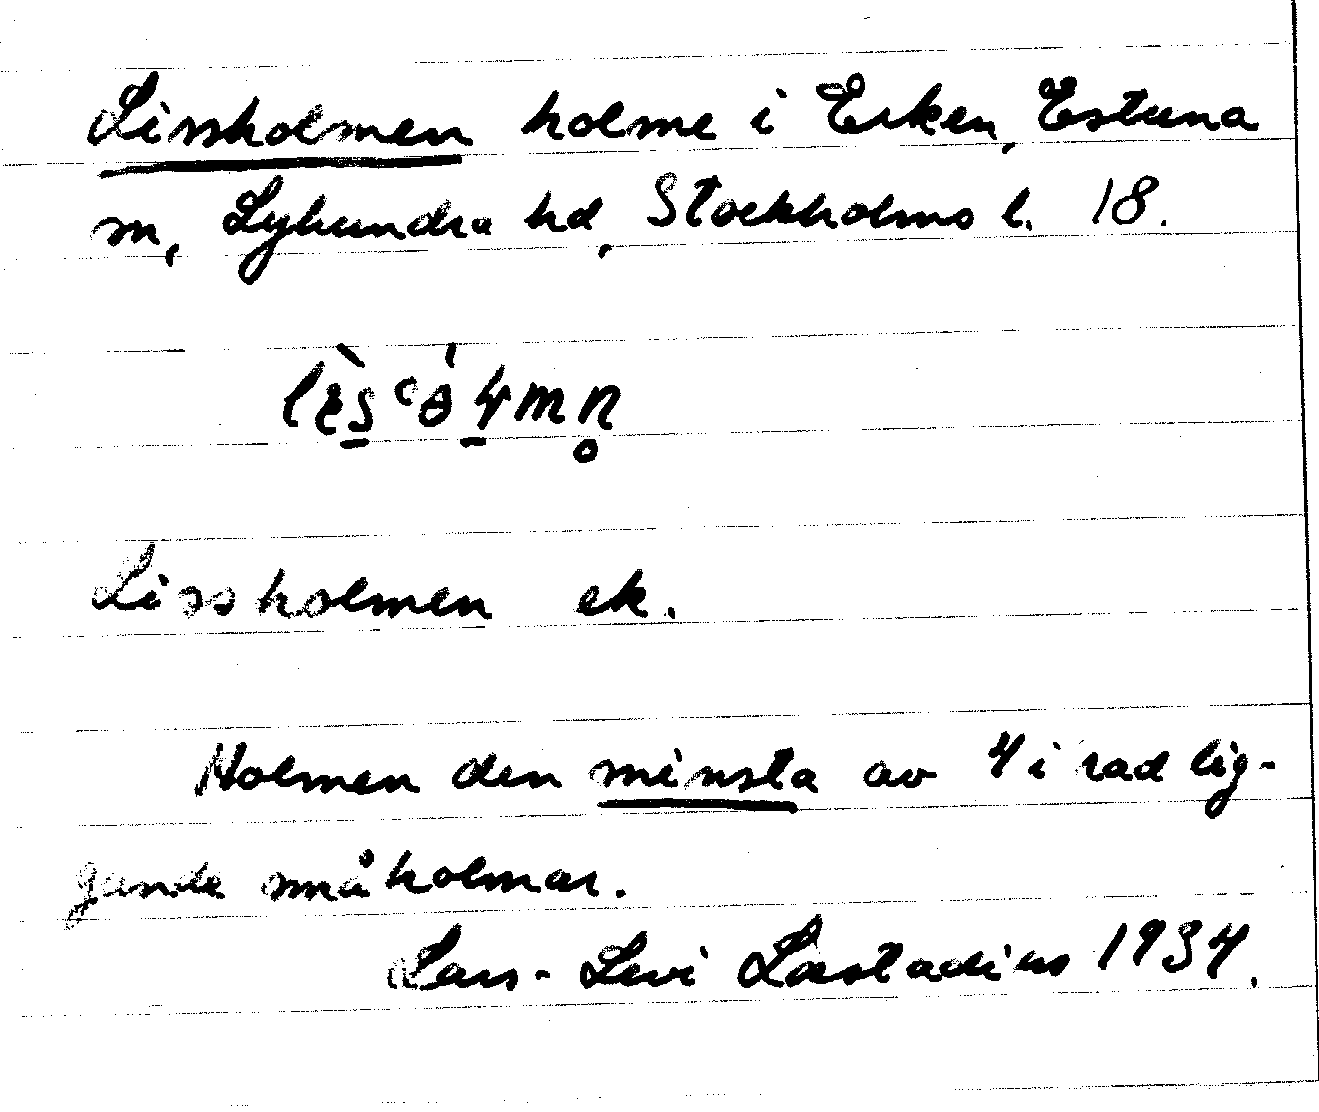 Lissholmen holme i Erken, Estuna
sn, Lyhundra hd, Stockholms l. 18.
Lissholmen ek.
Holmen den minsta av 4 i rad lig-
gande småholmar.
Lars-Levi Læstadius 1934.